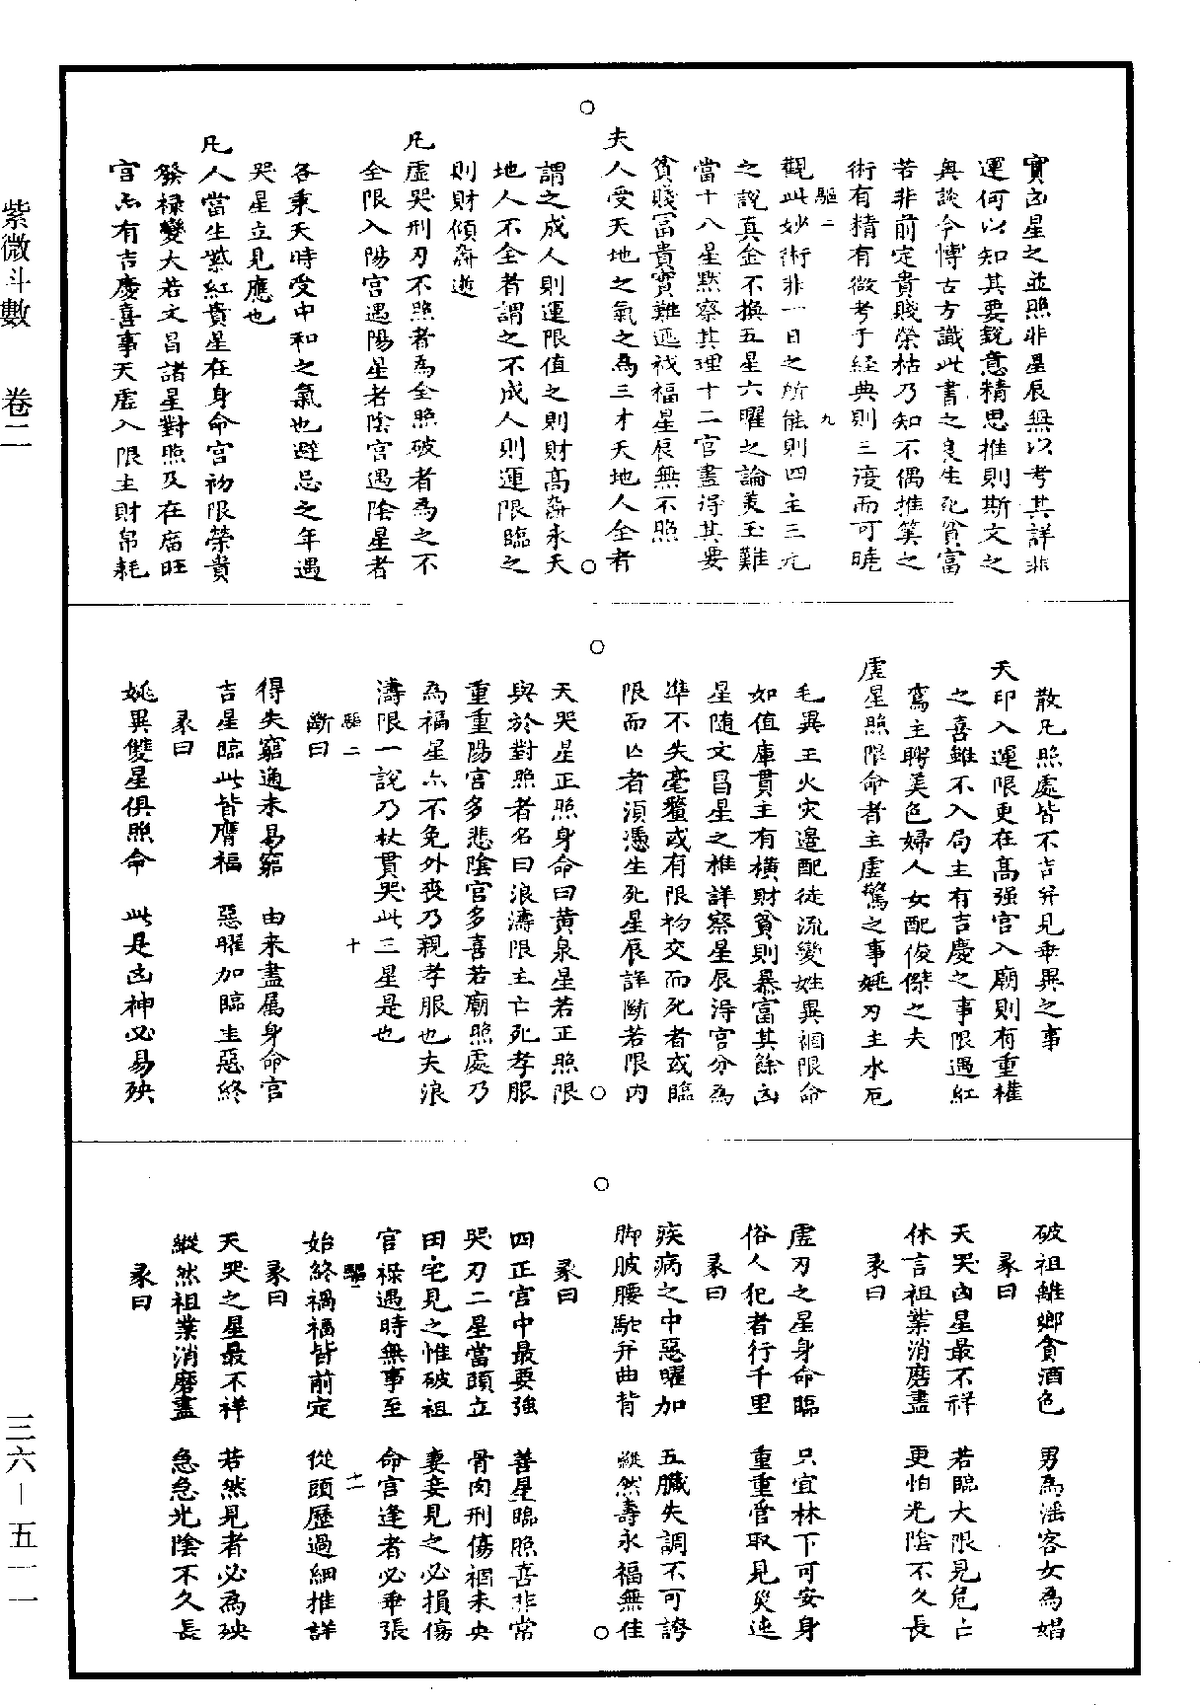 實凶星之並照非星辰無以考其詳非
運何以知其要銳意精思推則斯文之
與談今愽古方識此書之良生死貧富
若非前定貴賤榮枯乃知不偶推筭之
術有精有微考于經典則三復而可曉
驅二 九
觀此妙術非一日之所能則四主三元
之說真金不換五星六曜之論美玉難
當十八星黙察其理十二宮晝得其要
貧賤冨貴實難逃我福星辰無不照
夫人受天地之氣之為三才天地人全者
謂之成人則運限值之則財高齊永夭
地人不全者謂之不成人則運限臨之
則財傾齊逝
凡虛哭刑刃不照者為全照破者為之不
全限入陽宮遇陽星者陰宮遇陰星者
各秉天時受中和之氣也避忌之年遇
哭星立見應也
凡人當生紫紅貴星在身命宮初限榮貴
發祿變大若文昌諸星對照及在廟旺
宮亦有吉慶喜事天虛入限主財帛耗
散凡照處皆不吉并見垂異之事
天印入運限更在高强宮入廟則有重權
之喜雖不入局主有吉慶之事限遇紅
鸞主聘美色婦人女配俊傑之夫
虛星照限命者主虛驚之事姚刃主水厄
毛異主火灾邉配徒流變姓異裀限命
如值庫貫主有橫財貧則暴富其餘凶
星隨文昌星之推詳察星辰淂宮分為
凖不失毫釐或有限初交而死者或臨
限而亡者湏憑生死星辰詳斷若限内
天哭星正照身命曰黄泉星若正照限
與於對照者名曰浪濤限主亡死孝服
重重陽宮多悲陰宮多喜若廟照處乃
為福星亦不免外喪乃親孝服也夫浪
濤限一說乃杖貫哭此三星是也
驅二 十
斷曰
得失窮通未易窮 由来盡属身命宮
吉星臨此皆膺福 惡曜加臨主惡終
彖曰
姚異雙星俱照命 此是凶神必易殃
破祖離鄉貪酒色 男為滛客女為娼
彖曰
天哭凶星最不祥 若臨大限見危亡
休言祖業消磨盡 更怕光陰不久長
彖曰
虛刃之星身命臨 只宜林下可安身
俗人犯者行千里 重重管取見災迍
彖曰
疾病之中惡曜加 五臟失調不可誇
脚胈腰駝并曲背 縱然壽永福無佳
彖曰
四正宮中最要強 善星臨照喜非常
哭刃二星當頭立 骨肉刑傷裀未央
田宅見之惟破祖 妻妾見之必損傷
官祿遇時無事至 命宮逢者必乖張
驅二 十一
始終禍福皆前定 從頭歷過細推詳
彖曰
天哭之星最不祥 若然見者必為殃
縱然祖業消磨盡 急急光陰不久長
彖曰
紫微斗數 卷二
三六—五一一